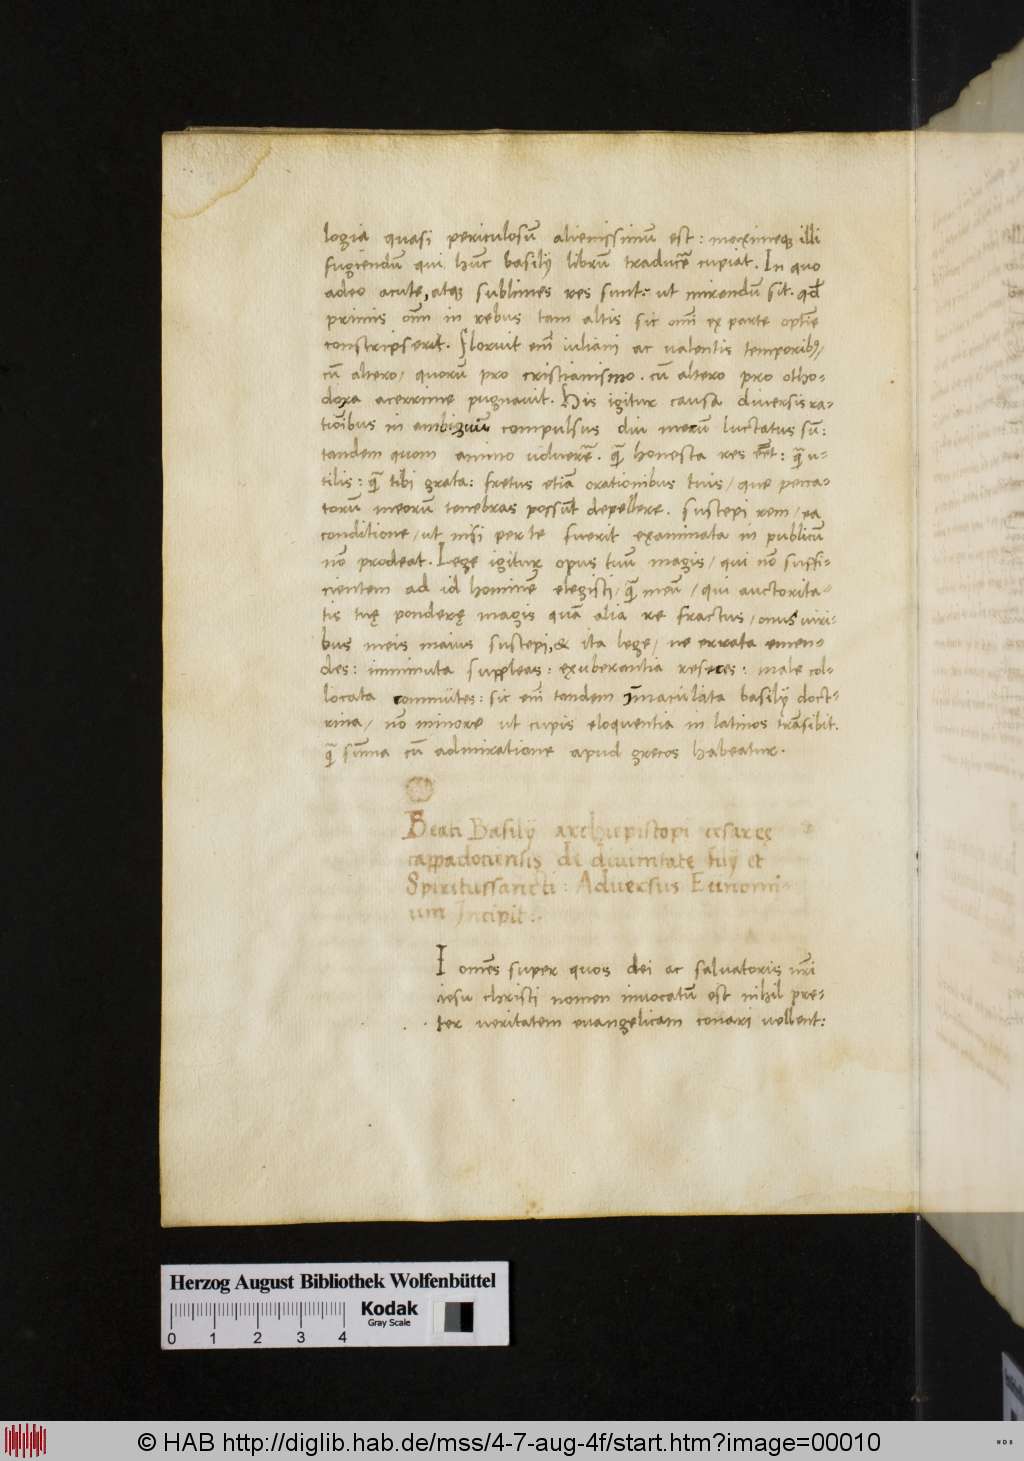 logia quasi periculosū alienissimū est: maximeqȝ illi
fugiendū qui hūc basilij librū traducȩ̄ cupiat. In quo
adeo acute, atqȝ sublimes res sunt: ut mirandū sit. qđ
primis om̄ in rebus tam altis sic om̄i ex parte optīe
conscripserit. floruit em̄ iuliani ac valentis temporibꝰ/
cū altero/ quorū pro cristianismo. cū altero pro otho-
doxa acerrime pugnauit. His igitur causa diuersis ra-
tiōibus in ambiguū compulsus diu mecū luctatus sū:
tandem quom animo uiderē. quā honesta res eēt: quā u-
tilis: quā tibi grata: fretus etiā orationibus tuis/ que pecca-
torū meorū tenebras possūt depellere. suscepi rem/ ea
conditione/ ut nisi per te fuerit examinata in publicū
nō prodeat. Lege igitur opus tuū magis/ qui nō suffi-
cientem ad id hominē elegisti/ quā meū/ qui auctorita-
tis tuę ponderę magis quā alia re fractus/ onus uiri-
bus meis maius suscepi, & ita lege/ ne errata emen-
des: inminuta suppleas: exuberantia reseces: male col-
locata commūtes: sic em̄ tandem īmaculata basilij doct-
rina/ nō minore ut cupis eloquentia in latinos trāsibit.
quā sūma cū admiratione apud grecos habeatur.
Beati Basilij archiepiscopi cesareę
cappadociensis de diuinitate filij et
Spiritussancti: Aduersus Eunomi-
um Incipit:.
I omēs super quos dei ac saluatoris nr̄i
iesu christi nomen inuocatū est nihil pre-
ter ueritatem euangelicam conari uellent:
Herzog August Bibliothek Wolfenbüttel
Kodak
Gray Scale
0 1 2 3 4
© HAB http://diglib.hab.de/mss/4-7-aug-4f/start.htm?image=00010